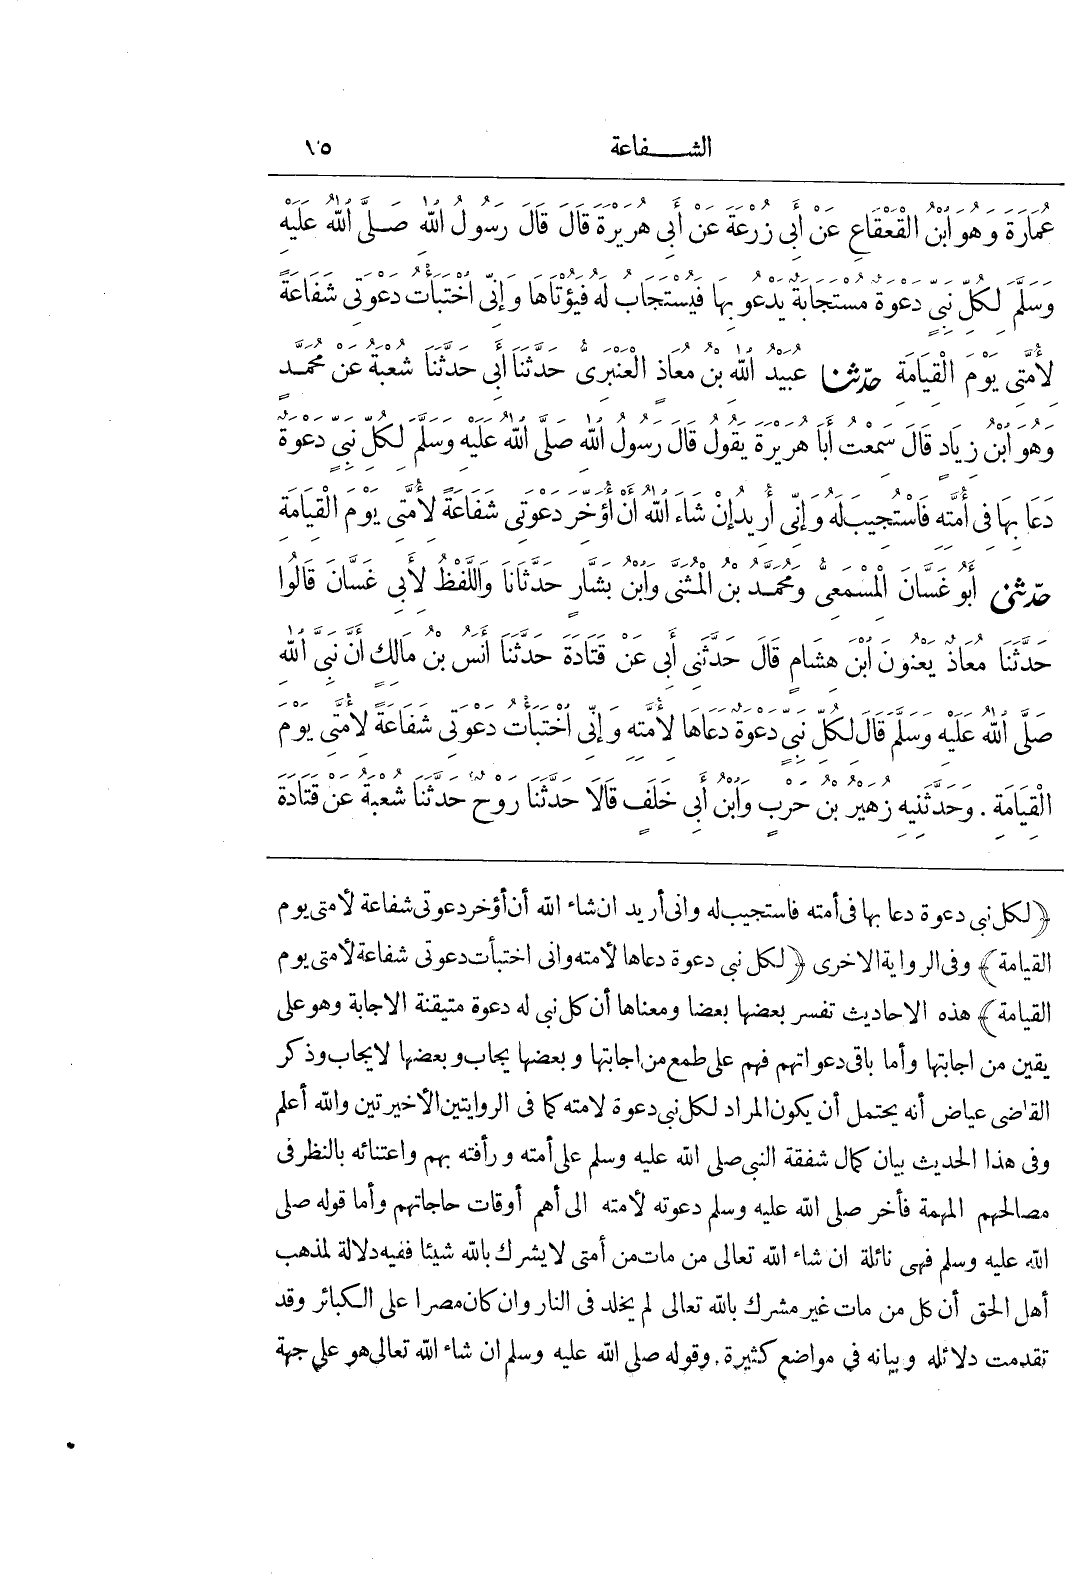 الشفاعة ٧٥
عُمَارَةَ وَهُوَ ابْنُ الْقَعْقَاعِ عَنْ أَبِي زُرْعَةَ عَنْ أَبِي هُرَيْرَةَ قَالَ قَالَ رَسُولُ اللهِ صَلَّى اللهُ عَلَيْهِ
وَسَلَّمَ لِكُلِّ نَبِيٍّ دَعْوَةٌ مُسْتَجَابَةٌ يَدْعُو بِهَا فَيُسْتَجَابُ لَهُ فَيُؤْتَاهَا وَإِنِّي اخْتَبَأْتُ دَعْوَتِي شَفَاعَةً
لِأُمَّتِي يَوْمَ الْقِيَامَةِ حدّثنا عُبَيْدُ اللهِ بْنُ مُعَاذٍ الْعَنْبَرِيُّ حَدَّثَنَا أَبِي حَدَّثَنَا شُعْبَةُ عَنْ مُحَمَّدٍ
وَهُوَ ابْنُ زِيَادٍ قَالَ سَمِعْتُ أَبَا هُرَيْرَةَ يَقُولُ قَالَ رَسُولُ اللهِ صَلَّى اللهُ عَلَيْهِ وَسَلَّمَ لِكُلِّ نَبِيٍّ دَعْوَةٌ
دَعَا بِهَا فِي أُمَّتِهِ فَاسْتُجِيبَ لَهُ وَإِنِّي أُرِيدُ إِنْ شَاءَ اللهُ أَنْ أُؤَخِّرَ دَعْوَتِي شَفَاعَةً لِأُمَّتِي يَوْمَ الْقِيَامَةِ
حدّثني أَبُو غَسَّانَ الْمِسْمَعِيُّ وَمُحَمَّدُ بْنُ الْمُثَنَّى وَابْنُ بَشَّارٍ حَدَّثَانَا وَاللَّفْظُ لِأَبِي غَسَّانَ قَالُوا
حَدَّثَنَا مُعَاذٌ يَعْنُونَ ابْنَ هِشَامٍ قَالَ حَدَّثَنِي أَبِي عَنْ قَتَادَةَ حَدَّثَنَا أَنَسُ بْنُ مَالِكٍ أَنَّ نَبِيَّ اللهِ
صَلَّى اللهُ عَلَيْهِ وَسَلَّمَ قَالَ لِكُلِّ نَبِيٍّ دَعْوَةٌ دَعَاهَا لِأُمَّتِهِ وَإِنِّي اخْتَبَأْتُ دَعْوَتِي شَفَاعَةً لِأُمَّتِي يَوْمَ
الْقِيَامَةِ . وَحَدَّثَنِيهِ زُهَيْرُ بْنُ حَرْبٍ وَابْنُ أَبِي خَلَفٍ قَالَا حَدَّثَنَا رَوْحٌ حَدَّثَنَا شُعْبَةُ عَنْ قَتَادَةَ
﴿لكل نبى دعوة دعا بها فى أمته فاستجيب له وانى أريد ان شاء الله أن أؤخر دعوتى شفاعة لأمتى يوم
القيامة﴾ وفى الرواية الاخرى ﴿لكل نبى دعوة دعاها لأمته وانى اختبأت دعوتى شفاعة لأمتى يوم
القيامة﴾ هذه الاحاديث تفسر بعضها بعضا ومعناها أن كل نبى له دعوة متيقنة الاجابة وهو على
يقين من اجابتها وأما باقى دعواتهم فهم على طمع من اجابتها وبعضها يجاب وبعضها لا يجاب وذكر
القاضى عياض أنه يحتمل أن يكون المراد لكل نبى دعوة لامته كما فى الروايتين الأخيرتين والله أعلم
وفى هذا الحديث بيان كمال شفقة النبى صلى الله عليه وسلم على أمته ورأفته بهم واعتنائه بالنظر فى
مصالحهم المهمة فأخر صلى الله عليه وسلم دعوته لأمته الى أهم أوقات حاجاتهم وأما قوله صلى
الله عليه وسلم فهى نائلة ان شاء الله تعالى من مات من أمتى لا يشرك بالله شيئا ففيه دلالة لمذهب
أهل الحق أن كل من مات غير مشرك بالله تعالى لم يخلد فى النار وان كان مصرا على الكبائر وقد
تقدمت دلائله وبيانه في مواضع كثيرة. وقوله صلى الله عليه وسلم ان شاء الله تعالى هو على جهة